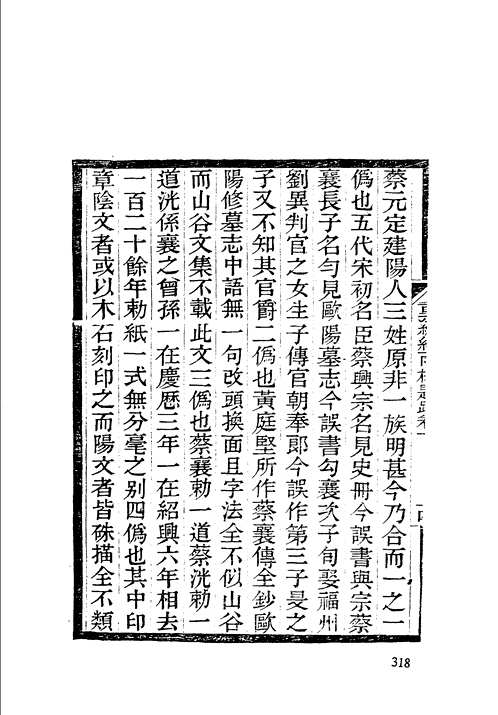 蔡元定建陽人三姓原非一族明甚今乃合而一之一
僞也五代宋初名臣蔡興宗名見史冊今誤書與宗蔡
襄長子名勻見歐陽墓志今誤書勾襄次子旬娶福州
劉異判官之女生子傳官朝奉郎今誤作第三子旻之
子又不知其官爵二僞也黃庭堅所作蔡襄傳全鈔歐
陽修墓志中語無一句改頭換面且字法全不似山谷
而山谷文集不載此文三僞也蔡襄勅一道蔡洸勅一
道洸係襄之曾孫一在慶曆三年一在紹興六年相去
一百二十餘年勅紙一式無分毫之别四僞也其中印
章陰文者或以木石刻印之而陽文者皆硃描全不類
318